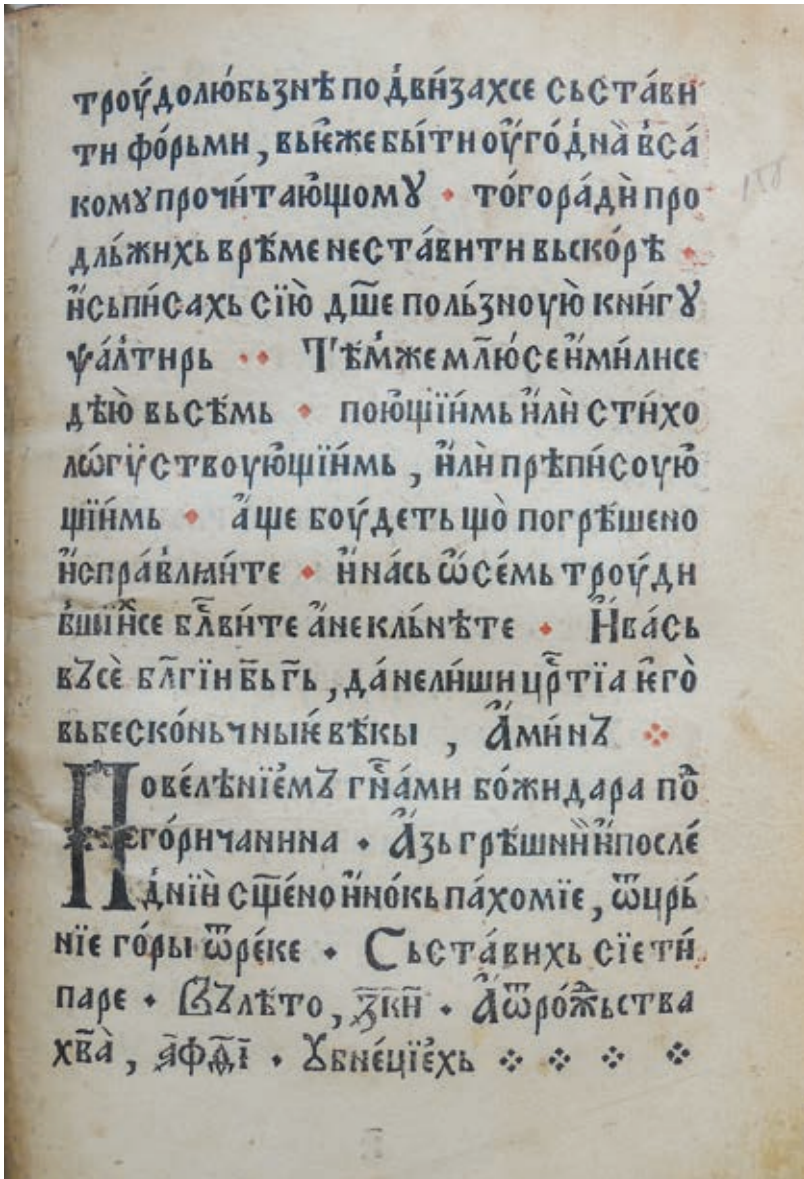 троу́долю́бьзнѣ подви́захсе сьста́ви
ти фо́рьми, вьѥ́же бы́ти оу҆го́дна̀ вса́
комꙋ прочи́таю҆щомꙋ · то́го ра́ди̇ про
дль́жихь врѣ́ме не ста́вити вьско́рѣ ·
и҆ сьпи́сахь сїю̀ дш҃е поль́зноую̀ кни́гꙋ
ѱа́лтирь ·· Тѣ́мже мл҃ю́се и҆ ми́лисе
дѣ́ю̀ вьсѣ́мь · пою҆щїи́мь и҆ли̇̀ сти́хо
лѡ́гѵ̈ствоую҆щїи́мь, и҆ли̇̀ прѣпи́соую҆
щїи́мь · а҆́ще боу́деть що̀ погрѣ́шено
и҆спра́влꙗи́те · и҆ на́сь ѡ҆ се́мь троу́ди
вшїи҆хсе бл҃ви́те а҆ не кль́нѣте · И҆ ва́сь
вꙋсѐ бл҃гїи б҃ь г҃ь, да́ не ли́ши цр҃тїа ѥ҆го̀
вь беско́ньчныѥ́ вѣ́кы, А҆ми́нꙋ
Пове́лѣнїе́мꙋ гн҃а ми бо́жидара по
го́ричанина · А҆зь грѣ́шнїи и҆ после́
днїи̇̀ сщ҃е́но и҆но́кь па́хомїе, ѿ црь́
нїе го́ры ѿ ре́ке · Сьста́вихь сїе ти́
паре · Вꙋ лѣ́то, ҂з҃к҃и҃ · А҆ ѿ ро́жⷣьства
хв҃а̀, ҂а҃ф҃ѳ҃і҃ · Ꙋ бне́цїе́хь